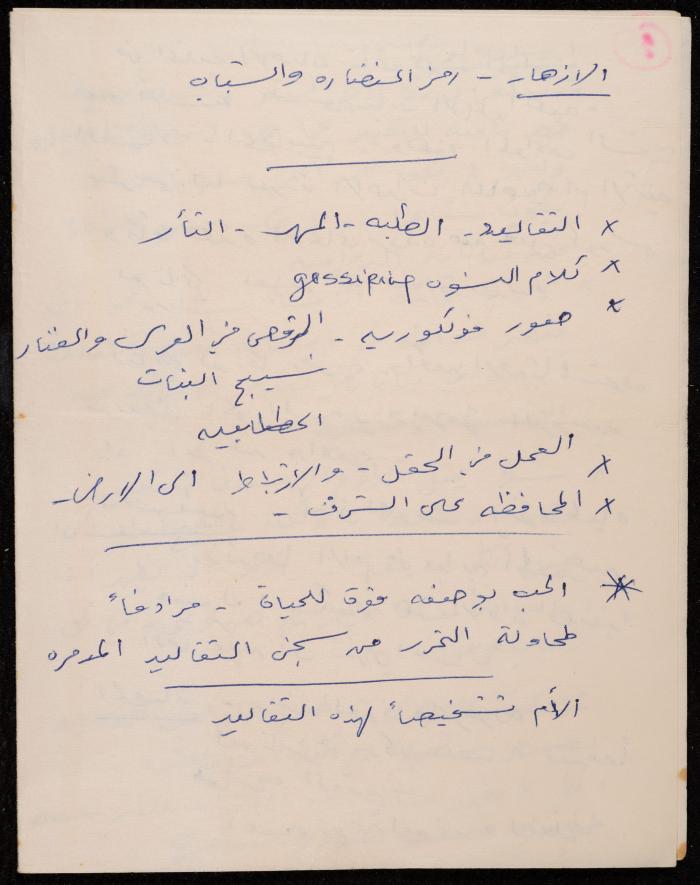 الازهار - رمز النضاره والشباب
x التقاليد - الطلبه - المهر - الثأر
x كلام النسوه gossiping
x صور فولكوريه - الرقص في العرس والغناء
نسيج البنات
x العمل في الحقل - والارتباط الى الارض -
x المحافظه على الشرف -
* الحب بوصفه قوة للحياة - مرادفاً
لمحاولة التحرر من سجن التقاليد المدمره
الأم تشخيصاً لهذه التقاليد